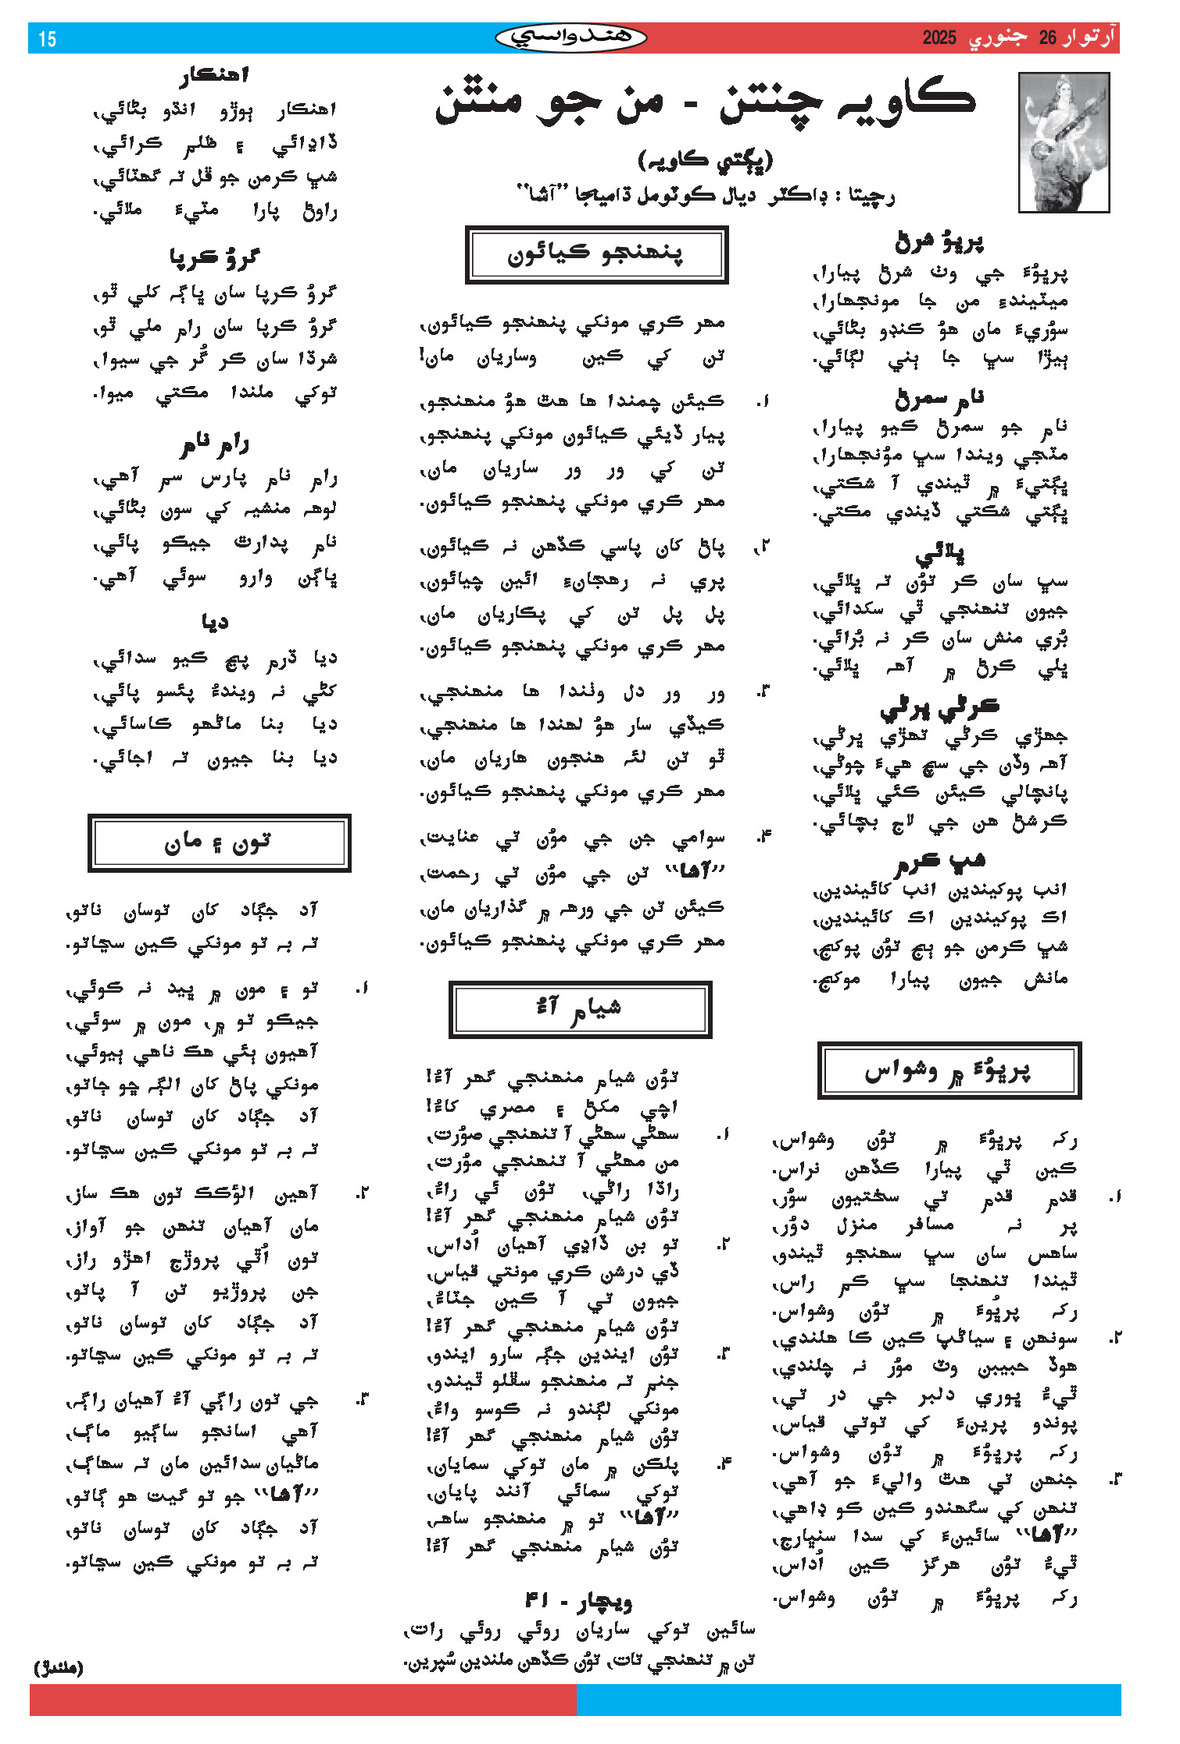 آرتوار 26 جنوري 2025
هندواسي
15
ڪاويہ چنتن - من جو منٿن
(ڀڳتي ڪاويہ)
رچيتا : ڊاڪٽر ديال ڪوٽومل ڌاميڄا ”آشا“
پرڀوُ شرڻ
پرڀوُءَ جي وٺ شرڻ پيارا،
ميٽيندءِ من جا مونجهارا،
سوُريءَ مان هوُ ڪنڊو بڻائي،
ٻيڙا سڀ جا ٻني لڳائي.
نام سمرڻ
نام جو سمرڻ ڪيو پيارا،
مٽجي ويندا سڀ موُنجهارا،
ڀڳتيءَ ۾ ٿيندي آ شڪتي،
ڀڳتي شڪتي ڏيندي مڪتي.
ڀلائي
سڀ سان ڪر توُن تہ ڀلائي،
جيون تنهنجي ٿي سڪدائي،
بُري منش سان ڪر نہ بُرائي.
ڀلي ڪرڻ ۾ آهہ ڀلائي.
ڪرڻي ڀرڻي
جهڙي ڪرڻي تهڙي ڀرڻي،
آهہ وڏن جي سچ هيءَ چوڻي،
پانچالي ڪيئن ڪئي ڀلائي،
ڪرشن هن جي لاج بچائي.
شڀ ڪرم
انب پوکيندين انب کائيندين،
اڪ پوکيندين اڪ کائيندين،
شڀ ڪرمن جو ٻج توُن پوکج،
مانش جيون پيارا موکج.
پرڀوُءَ ۾ وشواس
رکہ پرڀوُءَ ۾ توُن وشواس،
ڪين ٿي پيارا ڪڏهن نراس.
۱. قدم قدم تي سختيون سوُر،
پر نہ مسافر منزل دوُر،
ساهس سان سڀ سهنجو ٿيندو،
ٿيندا تنهنجا سڀ ڪم راس،
رکہ پرڀُوءَ ۾ توُن وشواس.
۲. سونهن ۽ سياڻپ ڪين ڪا هلندي،
هوڏ حبيبن وٽ موُر نہ چلندي،
ٿيءُ ڀوري دلبر جي در تي،
پوندو پرينءَ کي توتي قياس،
رکہ پرڀوُءَ ۾ توُن وشواس.
۳. جنهن تي هٿ واليءَ جو آهي،
تنهن کي سگهندو ڪين ڪو ڊاهي،
”آشا“ سائينءَ کي سدا سنڀارج،
ٿيءُ توُن هرگز ڪين اُداس،
رکہ پرڀوُءَ ۾ توُن وشواس.
پنهنجو ڪيائون
مهر ڪري مونکي پنهنجو ڪيائون،
تن کي ڪين وساريان مان!
۱. ڪيئن چمندا ها هٿ هوُ منهنجو،
پيار ڏيئي ڪيائون مونکي پنهنجو،
تن کي ور ور ساريان مان،
مهر ڪري مونکي پنهنجو ڪيائون.
۲. پاڻ کان پاسي ڪڏهن نہ ڪيائون،
پري نہ رهجانءِ ائين چيائون،
پل پل تن کي پڪاريان مان،
مهر ڪري مونکي پنهنجو ڪيائون.
۳. ور ور دل وٺندا ها منهنجي،
ڪيڏي سار هوُ لهندا ها منهنجي،
ٿو تن لئہ هنجون هاريان مان،
مهر ڪري مونکي پنهنجو ڪيائون.
۴. سوامي جن جي موُن تي عنايت،
”آشا“ تن جي موُن تي رحمت،
ڪيئن تن جي ورهہ ۾ گذاريان مان،
مهر ڪري مونکي پنهنجو ڪيائون.
شيام آءُ
توُن شيام منهنجي گهر آءُ!
اچي مکڻ ۽ مصري کاءُ!
۱. سهڻي سهڻي آ تنهنجي صوُرت،
من مهڻي آ تنهنجي موُرت،
راڌا راڻي، توُن ئي راءُ،
توُن شيام منهنجي گهر آءُ!
۲. تو بن ڏاڍي آهيان اُداس،
ڏي درشن ڪري مونتي قياس،
جيون تي آ ڪين جٽاءُ،
توُن شيام منهنجي گهر آءُ!
۳. توُن ايندين جڳہ سارو ايندو،
جنم تہ منهنجو سڦلو ٿيندو،
مونکي لڳندو نہ ڪوسو واءُ،
توُن شيام منهنجي گهر آءُ!
۴. پلڪن ۾ مان توکي سمايان،
توکي سمائي آنند پايان،
”آشا“ تو ۾ منهنجو ساهہ،
توُن شيام منهنجي گهر آءُ!
ويچار - ۴۱
سائين توکي ساريان روئي روئي رات،
تن ۾ تنهنجي تات، توُن ڪڏهن ملندين سُپرين.
اهنڪار
اهنڪار ٻوڙو انڌو بڻائي،
ڏاڍائي ۽ ظلم ڪرائي،
شڀ ڪرمن جو ڦل تہ گهٽائي،
راوڻ پارا مٽيءَ ملائي.
گروُ ڪرپا
گروُ ڪرپا سان ڀاڳہ کلي ٿو،
گروُ ڪرپا سان رام ملي ٿو،
شرڌا سان ڪر گُر جي سيوا،
توکي ملندا مڪتي ميوا.
رام نام
رام نام پارس سم آهي،
لوهہ منشيہ کي سون بڻائي،
نام پدارٿ جيڪو پائي،
ڀاڳن وارو سوئي آهي.
ديا
ديا ڌرم پڇ ڪيو سدائي،
کڻي نہ ويندءُ پئسو پائي،
ديا بنا ماڻهو ڪاسائي،
ديا بنا جيون تہ اجائي.
تون ۽ مان
آد جڳاد کان توسان ناتو،
تہ بہ تو مونکي ڪين سڃاتو.
۱. تو ۽ مون ۾ ڀيد نہ ڪوئي،
جيڪو تو ۾، مون ۾ سوئي،
آهيون ٻئي هڪ ناهي ٻيوئي،
مونکي پاڻ کان الڳہ ڇو ڄاتو،
آد جڳاد کان توسان ناتو،
تہ بہ تو مونکي ڪين سڃاتو.
۲. آهين الؤڪڪ تون هڪ ساز،
مان آهيان تنهن جو آواز،
تون اُٿي پروڙج اهڙو راز،
جن پروڙيو تن آ پاتو،
آد جڳاد کان توسان ناتو،
تہ بہ تو مونکي ڪين سڃاتو.
۳. جي تون راڳي آءُ آهيان راڳہ،
آهي اسانجو ساڳيو ماڳ،
ماڻيان سدائين مان تہ سهاڳ،
”آشا“ جو تو گيت هو ڳاتو،
آد جڳاد کان توسان ناتو،
تہ بہ تو مونکي ڪين سڃاتو.
(هلندڙ)